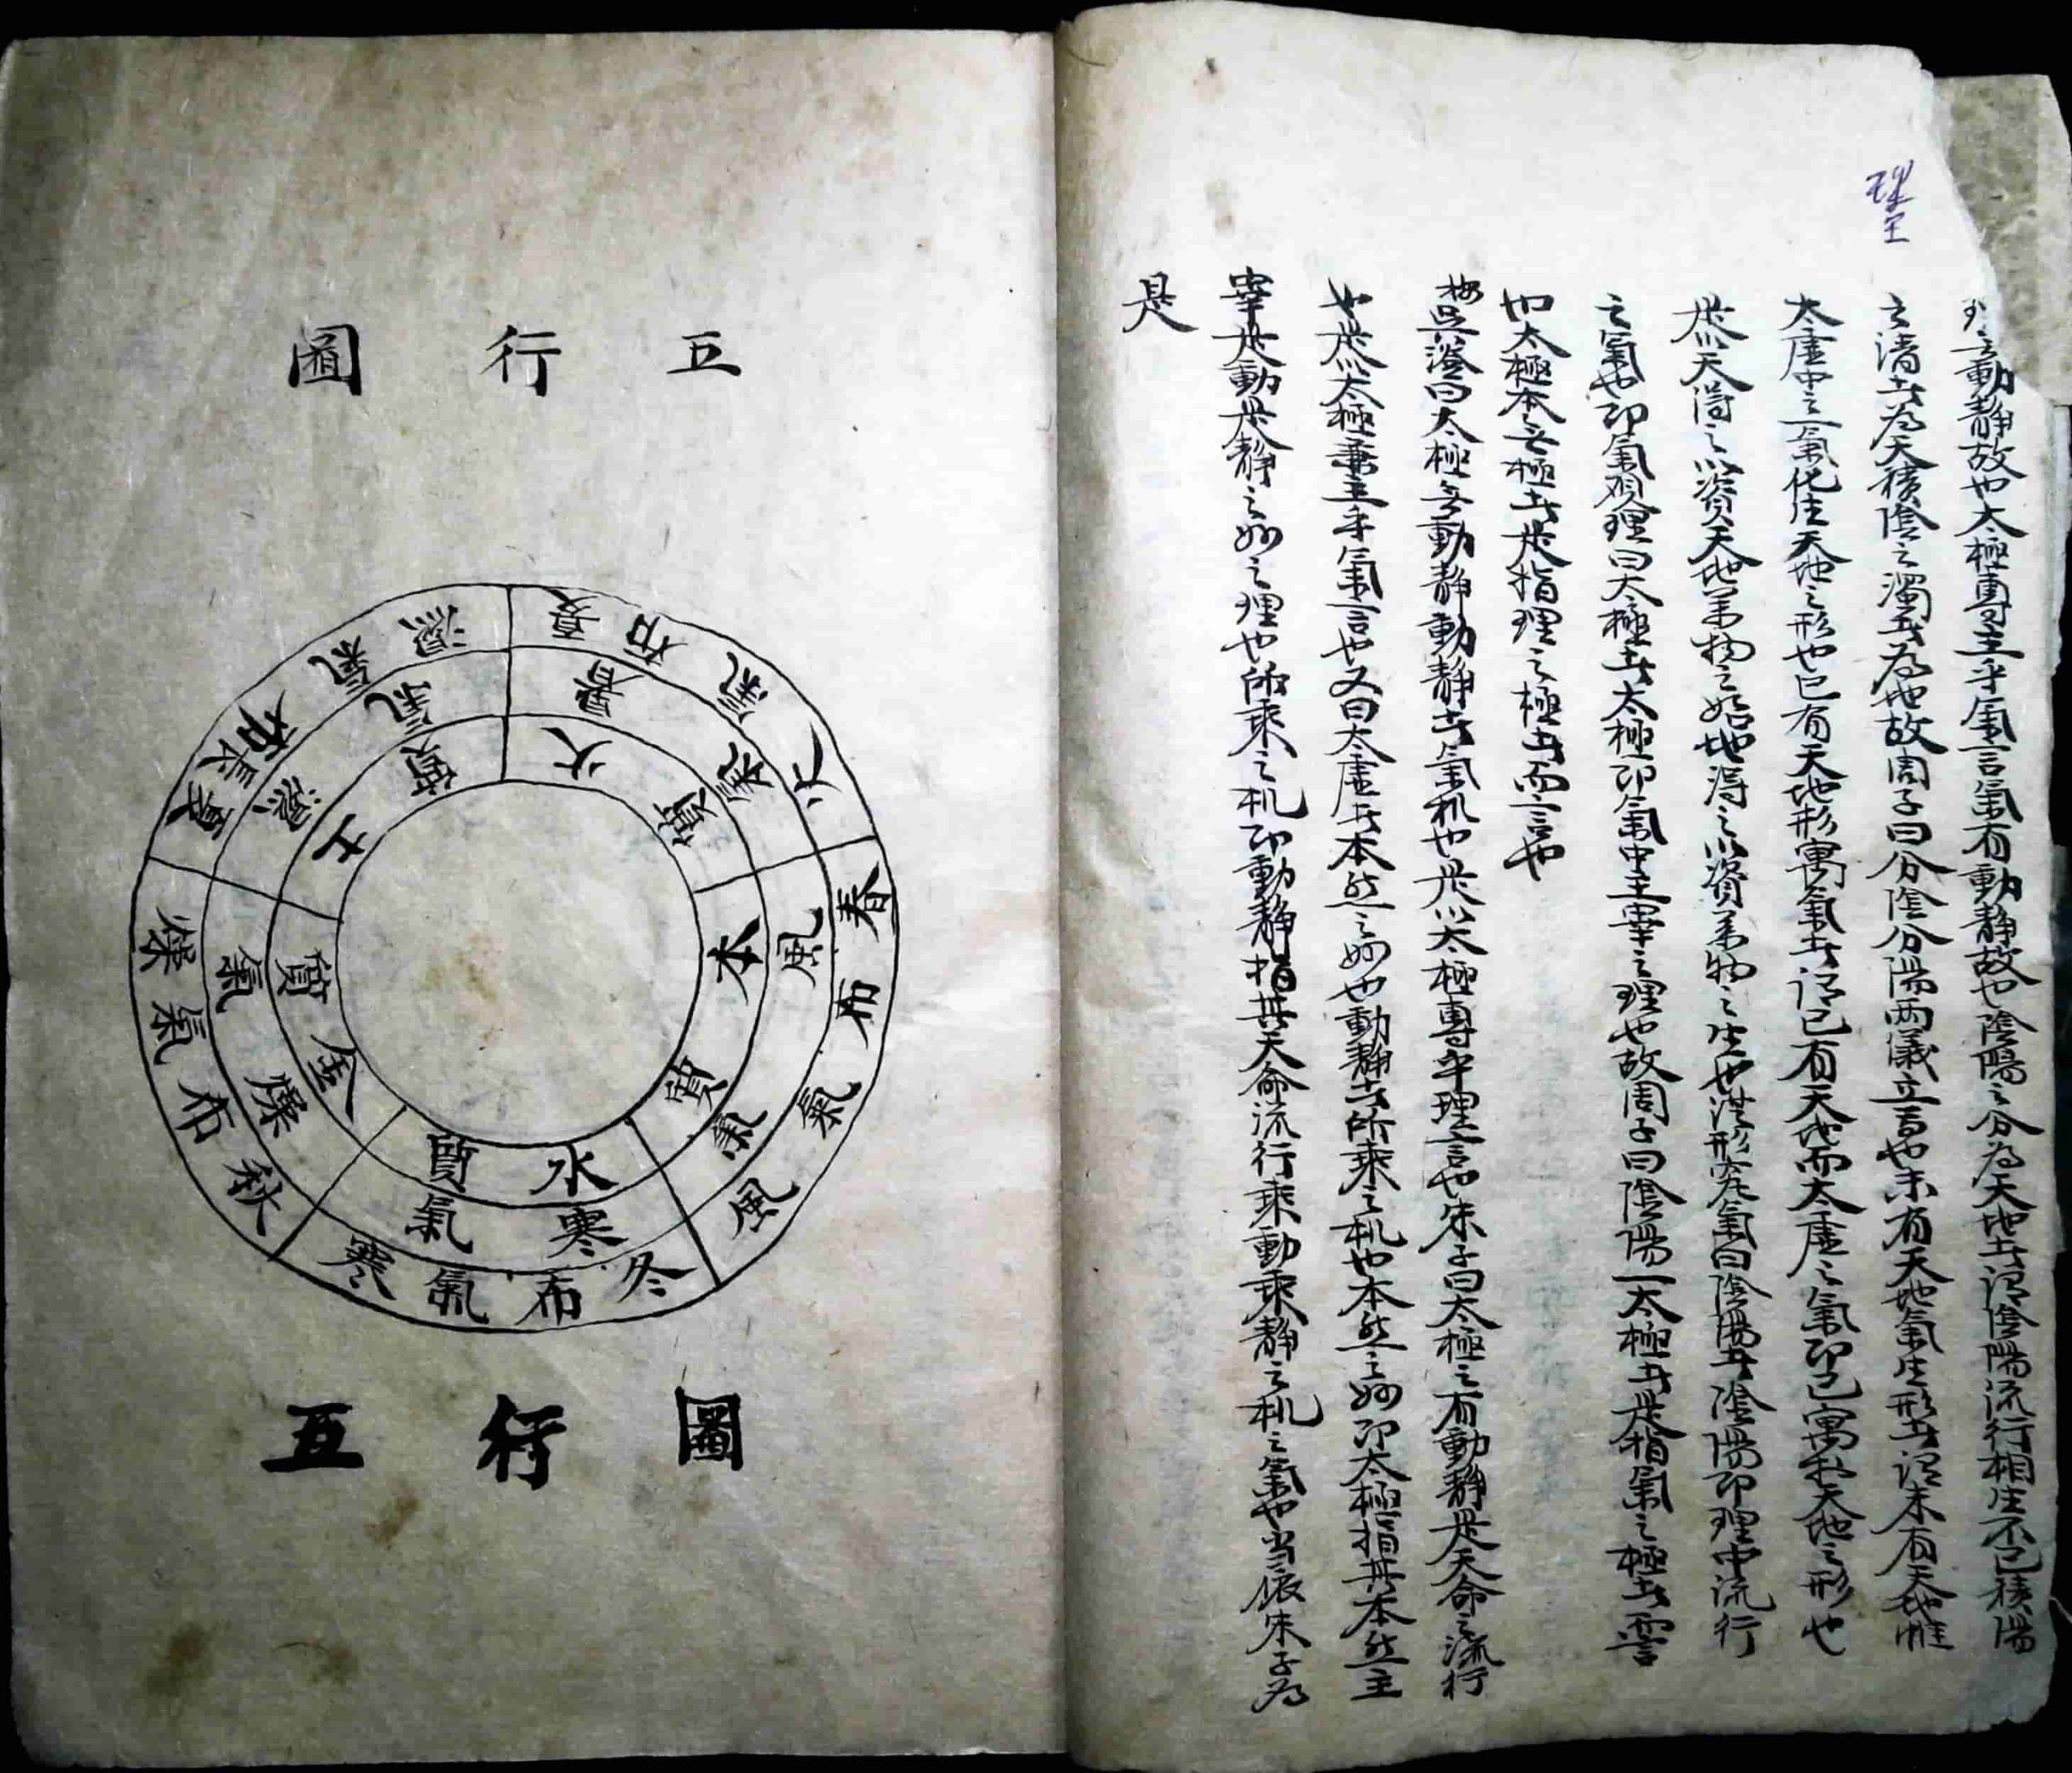 理
之動靜故也太極專主乎氣言氣有動靜故也陰陽之分為天地者謂陰陽流行相生不已積陽
之清者為天積陰之濁者為地故周子曰分陰分陽兩儀立焉也未有天地氣生形者謂未有天地惟
太虛中之氣化生天地之形也已有天地形寓氣者謂已有天地而太虛之氣即已寓於天地之形也
是以天得之以資天地萬物之始地得之以資萬物之生也洪形究氣曰陰陽者陰陽即理中流行
之氣也即氣观理曰太極者太極即氣中主宰之理也故周子曰陰陽一太極者是指氣之極者
也太極本無極者是指理之極者而言也
按吳澄曰太極無動靜動靜者氣机也是以太極專乎理言也朱子曰太極之有動靜是天命之流行
也是以太極兼主乎氣言也又曰太虛者本然之妙也動靜者所乘之机也本然之妙即太極指其本然主
宰是動是靜之妙之理也所乘之机即動靜指其天命流行乘動乘靜之机之氣也当依朱子為
是
五行圖
夏布氣火
暑氣
火質
春布氣風
風氣
木質
冬布氣寒
寒氣
水質
秋布氣燥
燥氣
金質
長夏布氣濕
濕氣
土質
五行圖